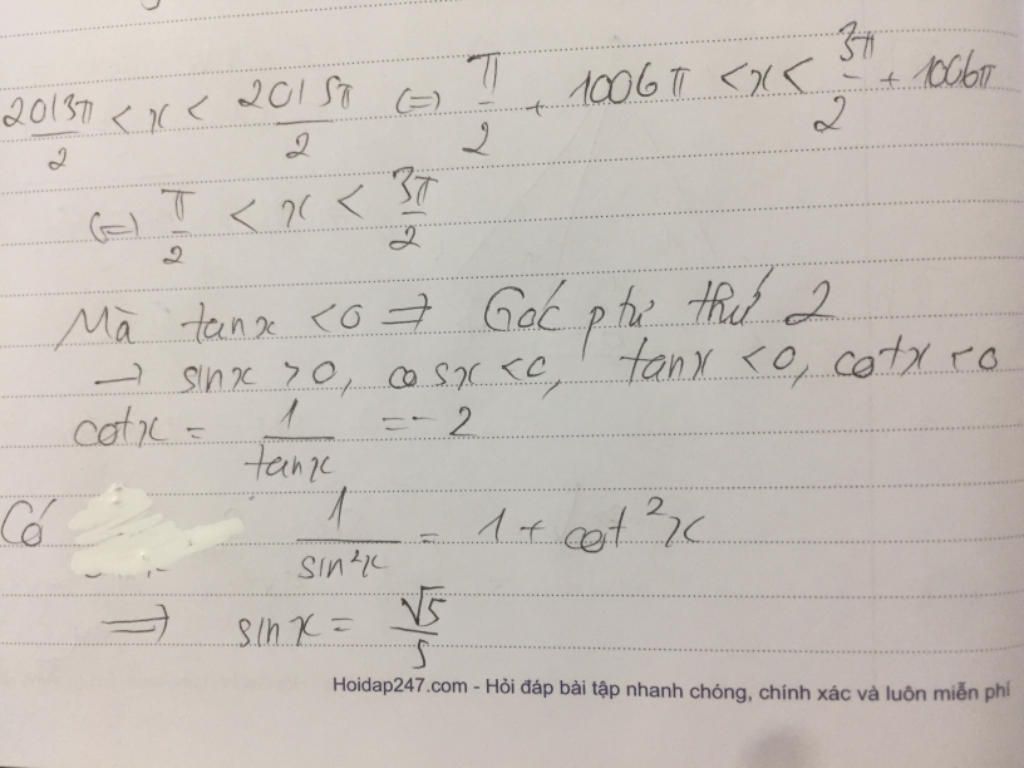 2013π/2 < x < 2015π/2 (=) π/2 + 1006π < x < 3π/2 + 1006π
(=) π/2 < x < 3π/2
Mà tanx < 0 => Góc phtư thứ 2
→ sinx > 0, cosx < 0, tanx < 0, cotx < 0
cotx = 1/tanx = - 2
Có 1/sin²x = 1 + cot²x
=> sinx = √5/5
Hoidap247.com - Hỏi đáp bài tập nhanh chóng, chính xác và luôn miễn phí